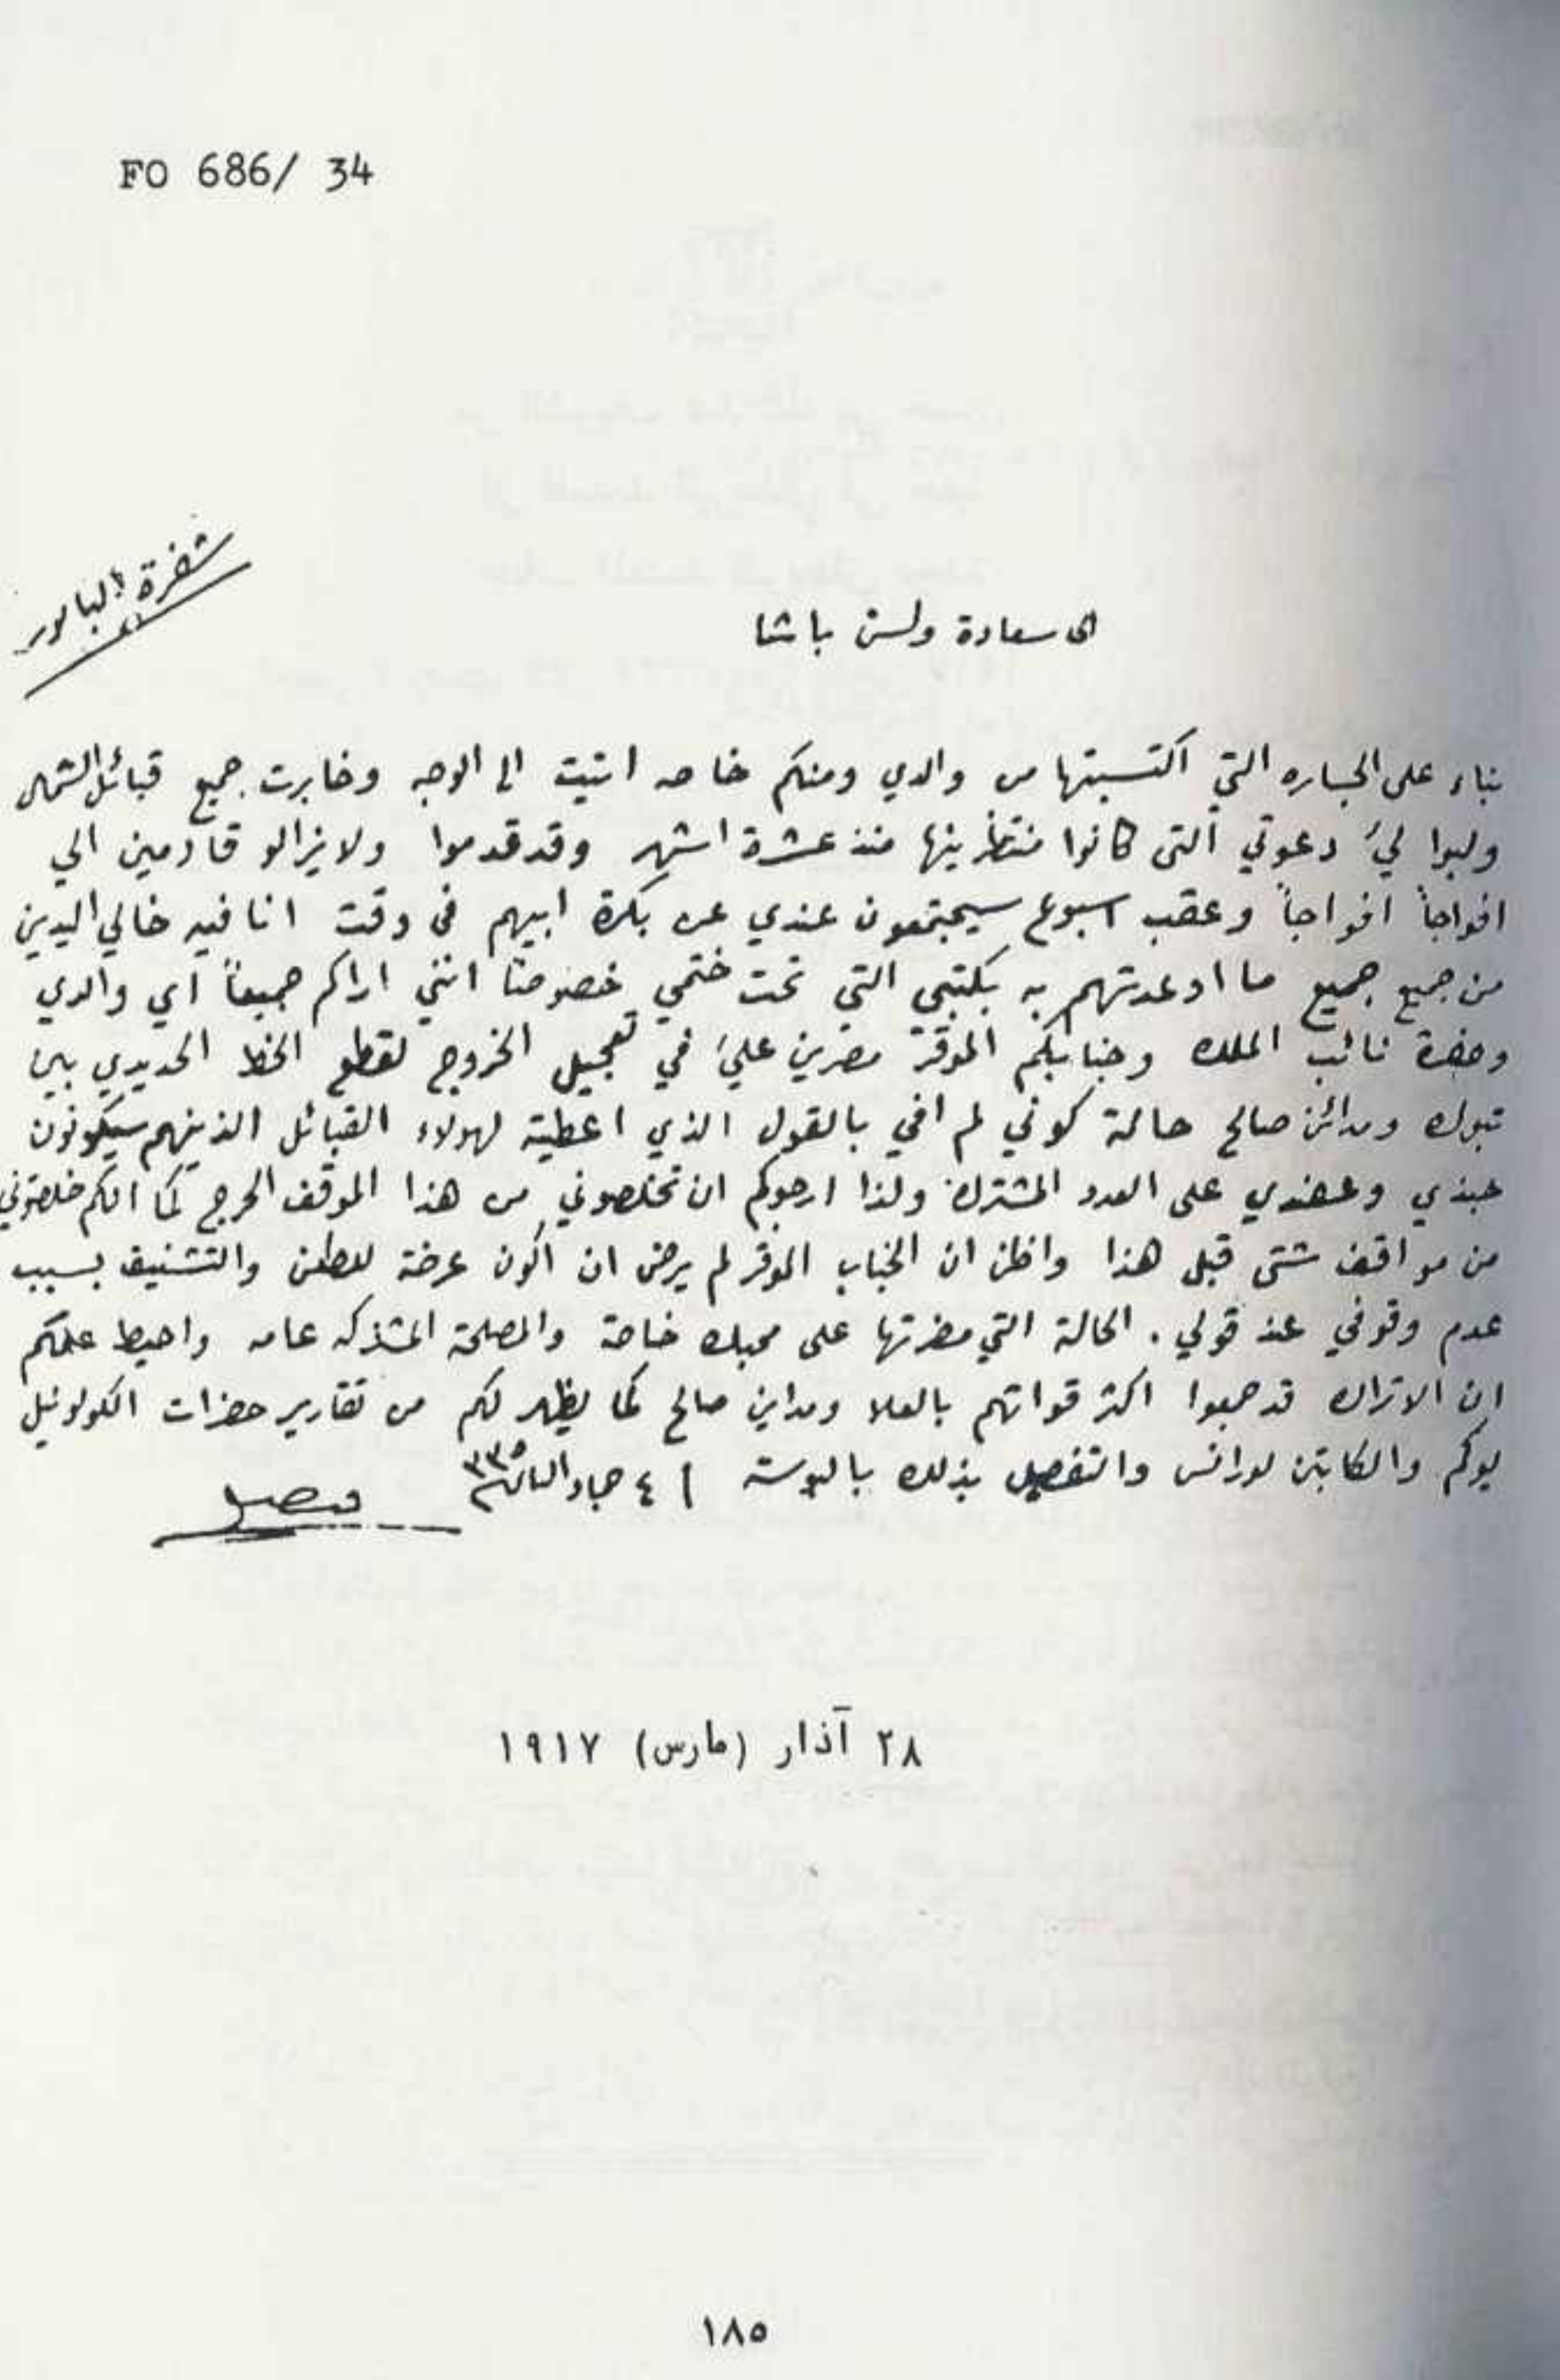 FO 686/ 34
شفرة البابور
الى سعادة ولسن باشا
بناء على الجساره التي اكتسبتها من والدي ومنكم خاصه اتيت الى الوجه وخابرت جميع قبائل الشمال
ولبوا ليَ دعوتي التى كانوا منتظرينها منذ عشرة اشهر وقد قدموا ولا يزالو قادمين الي
افواجاً افواجاً وعقب اسبوع سيجتمعون عندي عن بكرة ابيهم في وقت انا فيه خالي اليدين
من جميع جميع ما اوعدتهم به بكتبي التي تحت ختمي خصوصاً انني اراكم جميعاً اي والدي
وحضرة نائب الملك وجنابكم الموقر مصرين عليَ في تعجيل الخروج لقطع الخط الحديدي بين
تبوك ومدائن صالح حالة كوني لم افي بالقول الذي اعطيته لهولاء القبائل الذينهم سيكونون
جندي وعضدي على العدو المشترك ولذا ارجوكم ان تخلصوني من هذا الموقف الحرج كما انكم خلصتوني
من مواقف شتى قبل هذا واظن ان الجناب الموقر لم يرض ان اكون عرضة للطعن والتشنيف بسبب
عدم وقوفي عند قولي . الحالة التي مضرتها على محبك خاصة والمصلحة المشتركه عامه واحيط علمكم
ان الاتراك قد جمعوا اكثر قواتهم بالعلا ومداين صالح كما يظهر لكم من تقارير حضرات الكولونيل
يوكم والكابتن لورانس والتفصيل بذلك بالبوسته ٤ جماد الثاني ٣٣٥
فيصل
٢٨ آذار (مارس) ١٩١٧
١٨٥